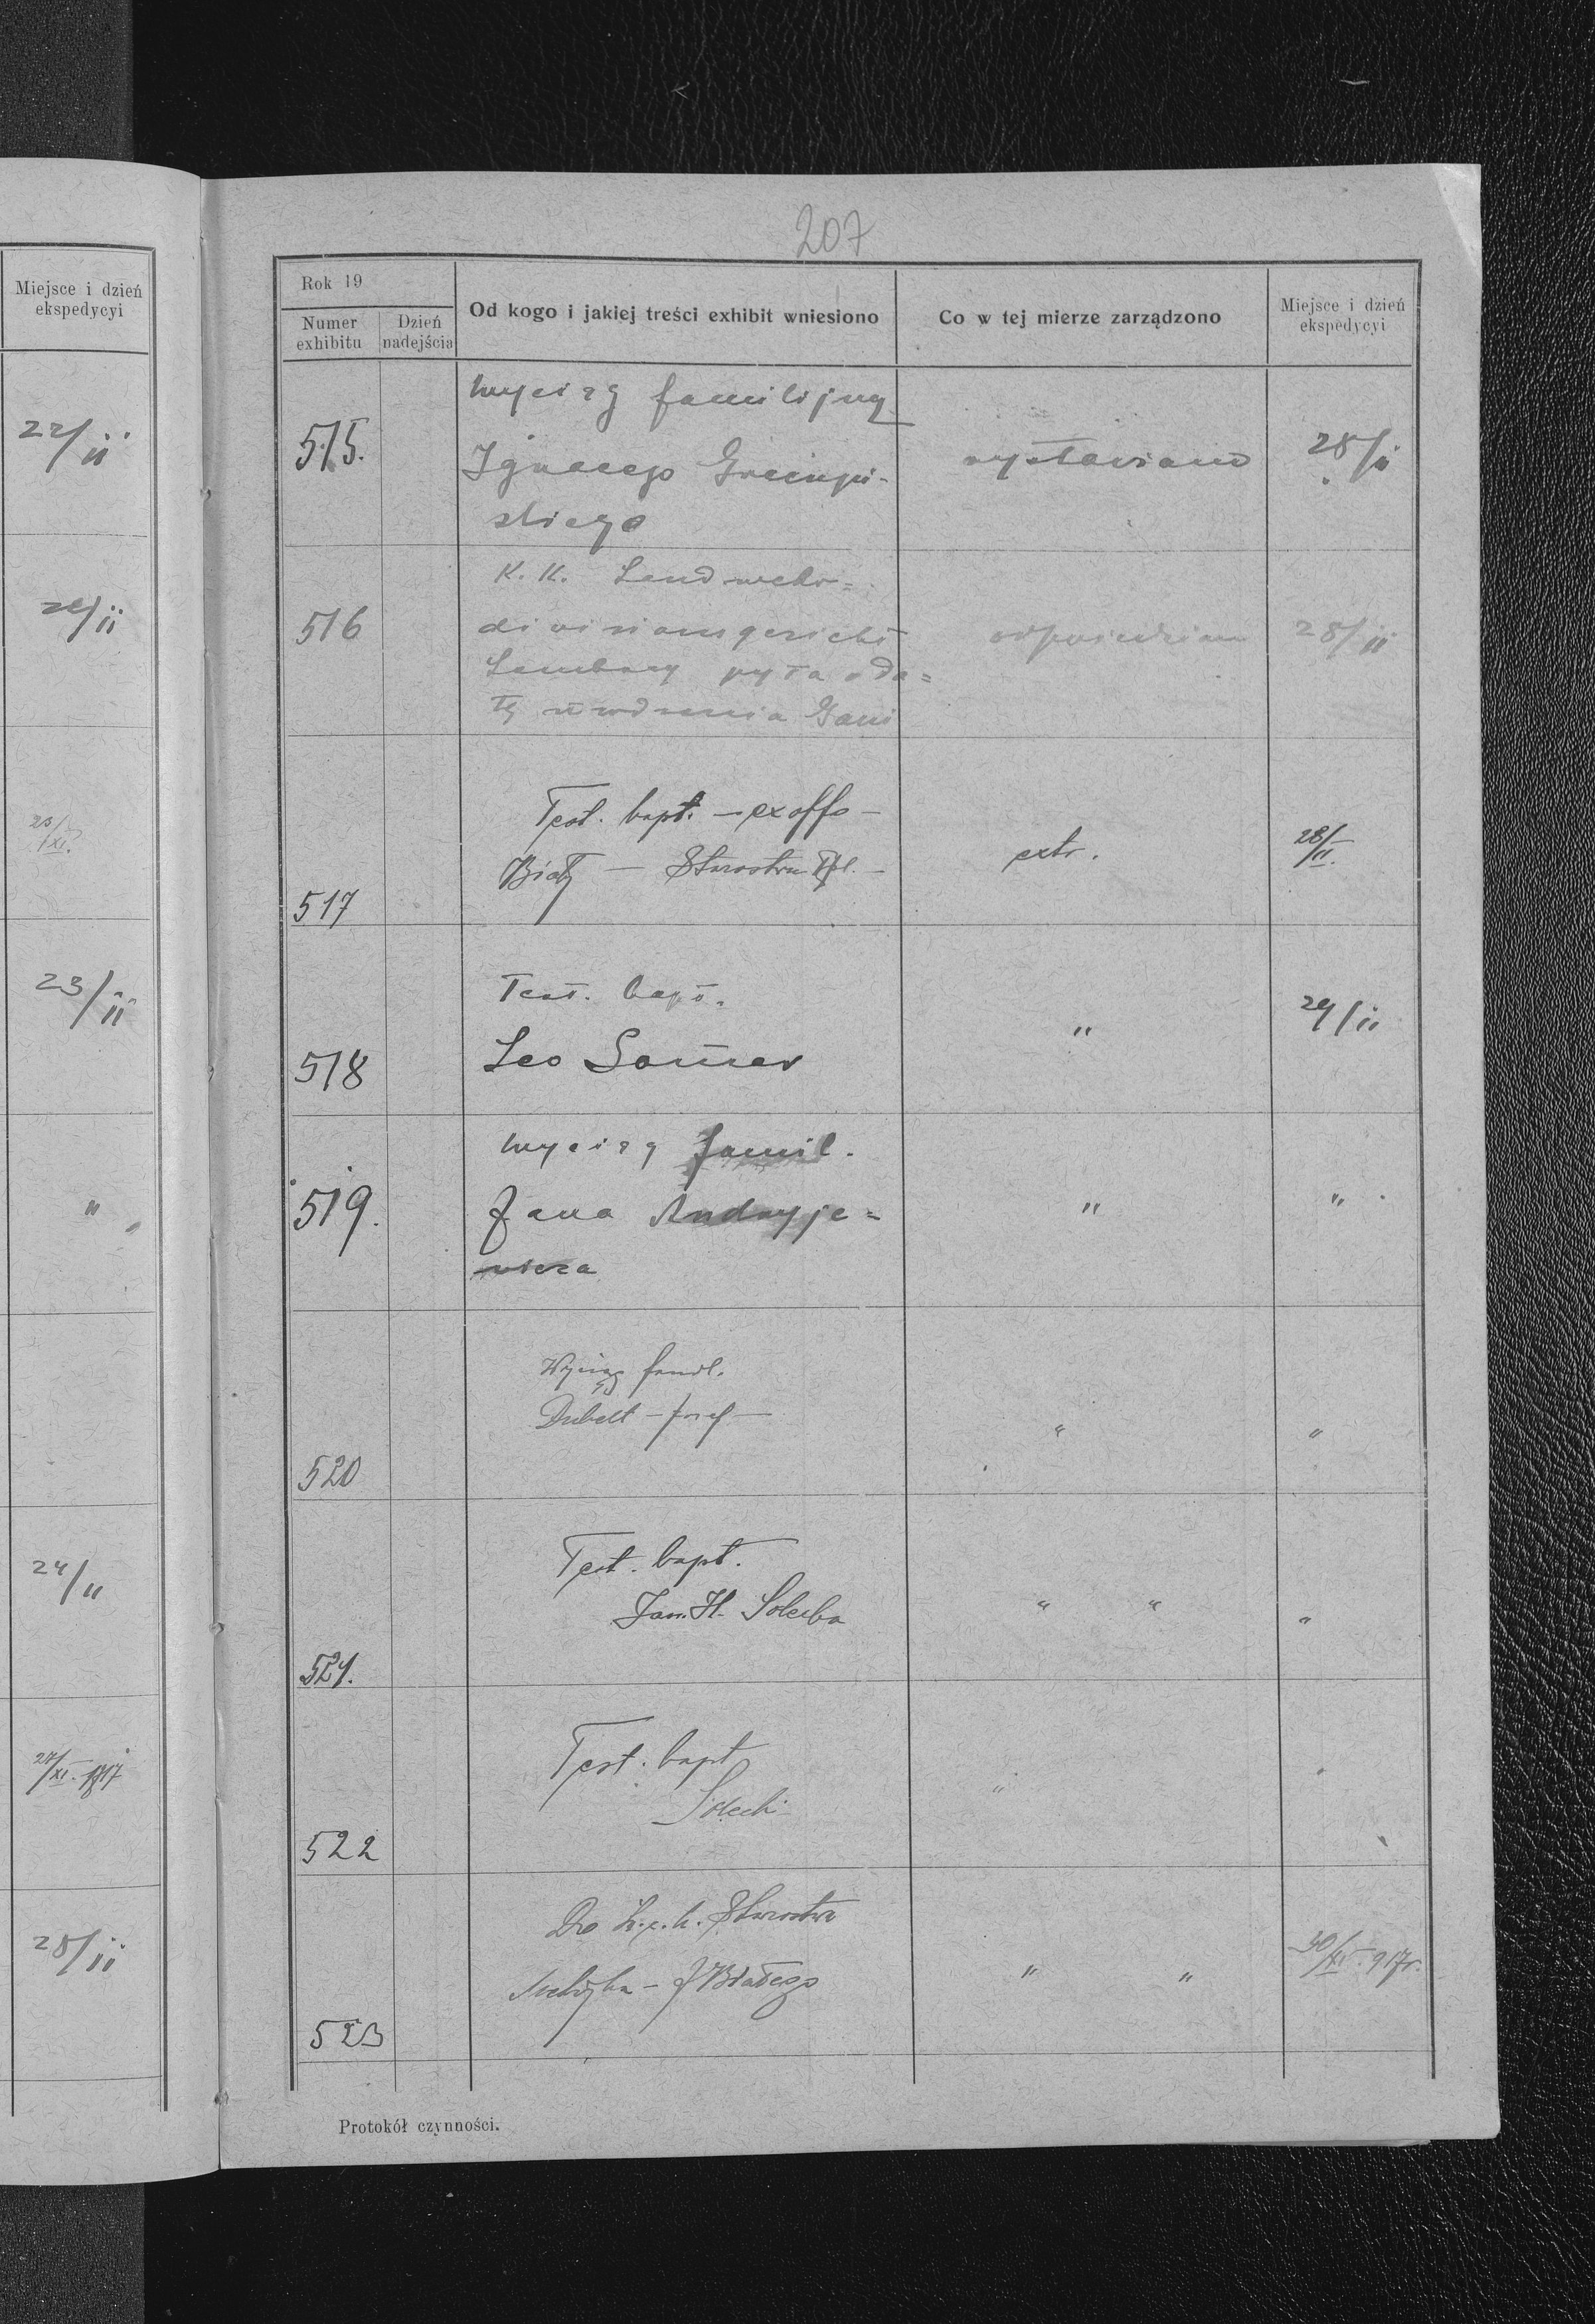 Miejsce i dzień
ekspedycyi
22/ii
22/ii
23/XI.
23/ii
" "
24/ii
27/XI. 1917
28/ii
207
Rok 19
Numer
exhibitu
Dzień
nadejścia
Od kogo i jakiej treści exhibit wniesiono
Co w tej mierze zarządzono
Miejsce i dzień
ekspedycyi
515.
Wyciąg familijny
Ignacego
skiego
wystawiono
28/ii
516
K. K. Landwehr=
divisionsgericht
Lemberg pyta o da=
tę urodzenia
28/ii
517
Test. bapt. — ex offo —
Biały — Starostwu
extr.
28/II.
518
Test. bapt.
Leo
"
29/ii
519.
Wyciąg famil.
Jana Andryje=
wicza
"
"
520
Wyciąg famil.
Dubelt — Józef —
"
"
521.
Test. bapt.
Jan. H. Solecka
" "
"
522
Test. bapt
Solecki
"
523
Do k. c. k. Starostwa
Metryka — J Białego
" "
30/XI. 917 r.
Protokół czynności.